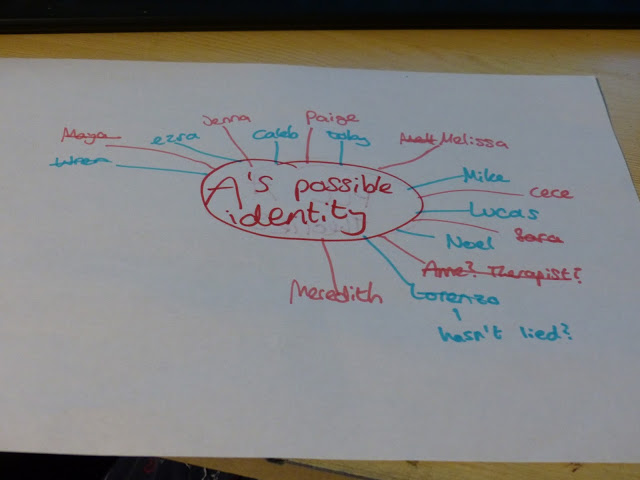 Jenna
Paige
Maya
ezra
Caleb
Toby
Melissa
Wren
Mike
A's possible
identity
cece
Lucas
Sara
Noel
Anne? Therapist?
Meredith
Lorenzo
hasn't lied?